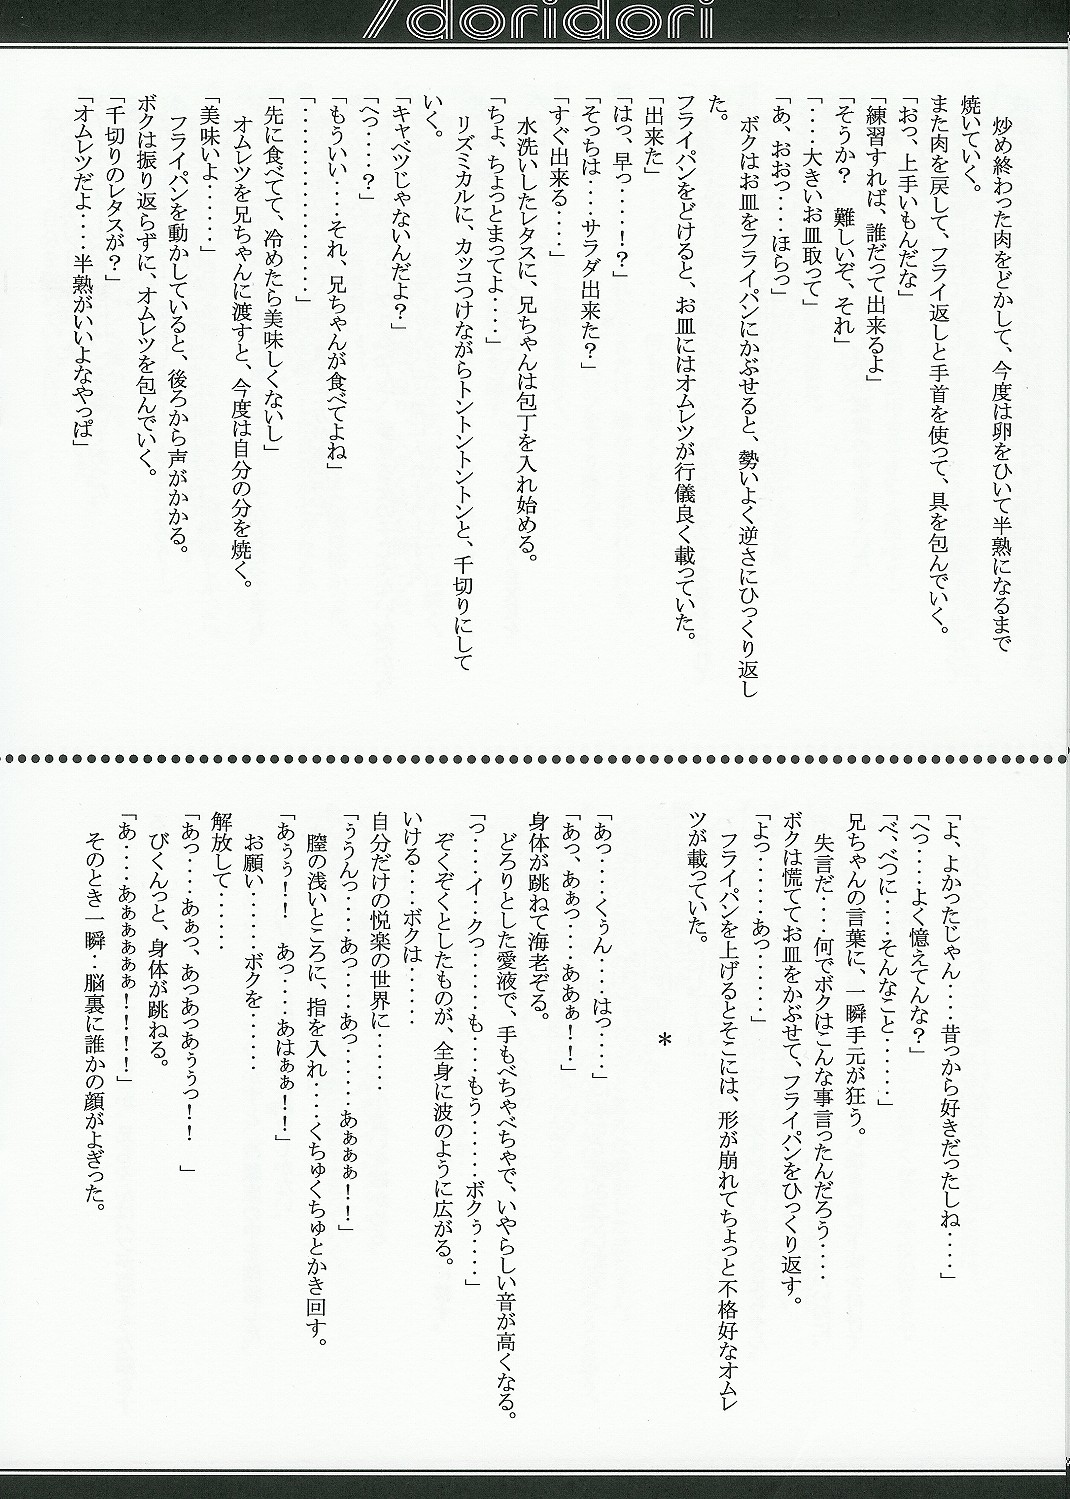 /doridori
炒め終わった肉をどかして、今度は卵をひいて半熟になるまで
焼いていく。
また肉を戻して、フライ返しと手首を使って、具を包んでいく。
「おっ、上手いもんだな」
「練習すれば、誰だって出来るよ」
「そうか？　難しいぞ、それ」
「‥‥大きいお皿取って」
「あ、おおっ‥‥ほらっ」
ボクはお皿をフライパンにかぶせると、勢いよく逆さにひっくり返し
た。
フライパンをどけると、お皿にはオムレツが行儀良く載っていた。
「出来た」
「はっ、早っ‥‥！？」
「そっちは‥‥サラダ出来た？」
「すぐ出来る‥‥」
水洗いしたレタスに、兄ちゃんは包丁を入れ始める。
「ちょ、ちょっとまってよ‥‥」
リズミカルに、カッコつけながらトントントントンと、千切りにして
いく。
「キャベツじゃないんだよ？」
「へっ‥‥？」
「もういい‥‥それ、兄ちゃんが食べてよね」
「‥‥‥‥‥‥‥‥‥」
「先に食べてて、冷めたら美味しくないし」
オムレツを兄ちゃんに渡すと、今度は自分の分を焼く。
「美味いよ‥‥‥」
フライパンを動かしていると、後ろから声がかかる。
ボクは振り返らずに、オムレツを包んでいく。
「千切りのレタスが？」
「オムレツだよ‥‥半熟がいいよなやっぱ」
「よ、よかったじゃん‥‥昔っから好きだったしね‥‥」
「へっ‥‥よく憶えてんな？」
「べ、べつに‥‥そんなこと‥‥‥」
兄ちゃんの言葉に、一瞬手元が狂う。
失言だ‥‥何でボクはこんな事言ったんだろう‥‥
ボクは慌ててお皿をかぶせて、フライパンをひっくり返す。
「よっ‥‥‥あっ‥‥‥」
フライパンを上げるとそこには、形が崩れてちょっと不格好なオムレ
ツが載っていた。
＊
「あっ‥‥くぅん‥‥はっ‥‥」
「あっ、あぁっ‥‥ああぁ！！」
身体が跳ねて海老ぞる。
どろりとした愛液で、手もべちゃべちゃで、いやらしい音が高くなる。
「っ‥‥イ‥クっ‥‥‥も‥‥もう‥‥‥ボクぅ‥‥」
ぞくぞくとしたものが、全身に波のように広がる。
いける‥‥ボクは‥‥‥
自分だけの悦楽の世界に‥‥‥
「ぅうんっ‥‥あっ‥‥あっ‥‥‥あぁぁぁ！！」
膣の浅いところに、指を入れ‥‥くちゅくちゅとかき回す。
「あぅぅ！！　あっ‥‥あはぁぁ！！」
お願い‥‥‥ボクを‥‥‥
解放して‥‥‥
「あっ‥‥あぁっ、あっあっあぅうっ！！　」
びくんっと、身体が跳ねる。
「あ‥‥あぁぁぁぁぁ！！！！」
そのとき一瞬‥脳裏に誰かの顔がよぎった。